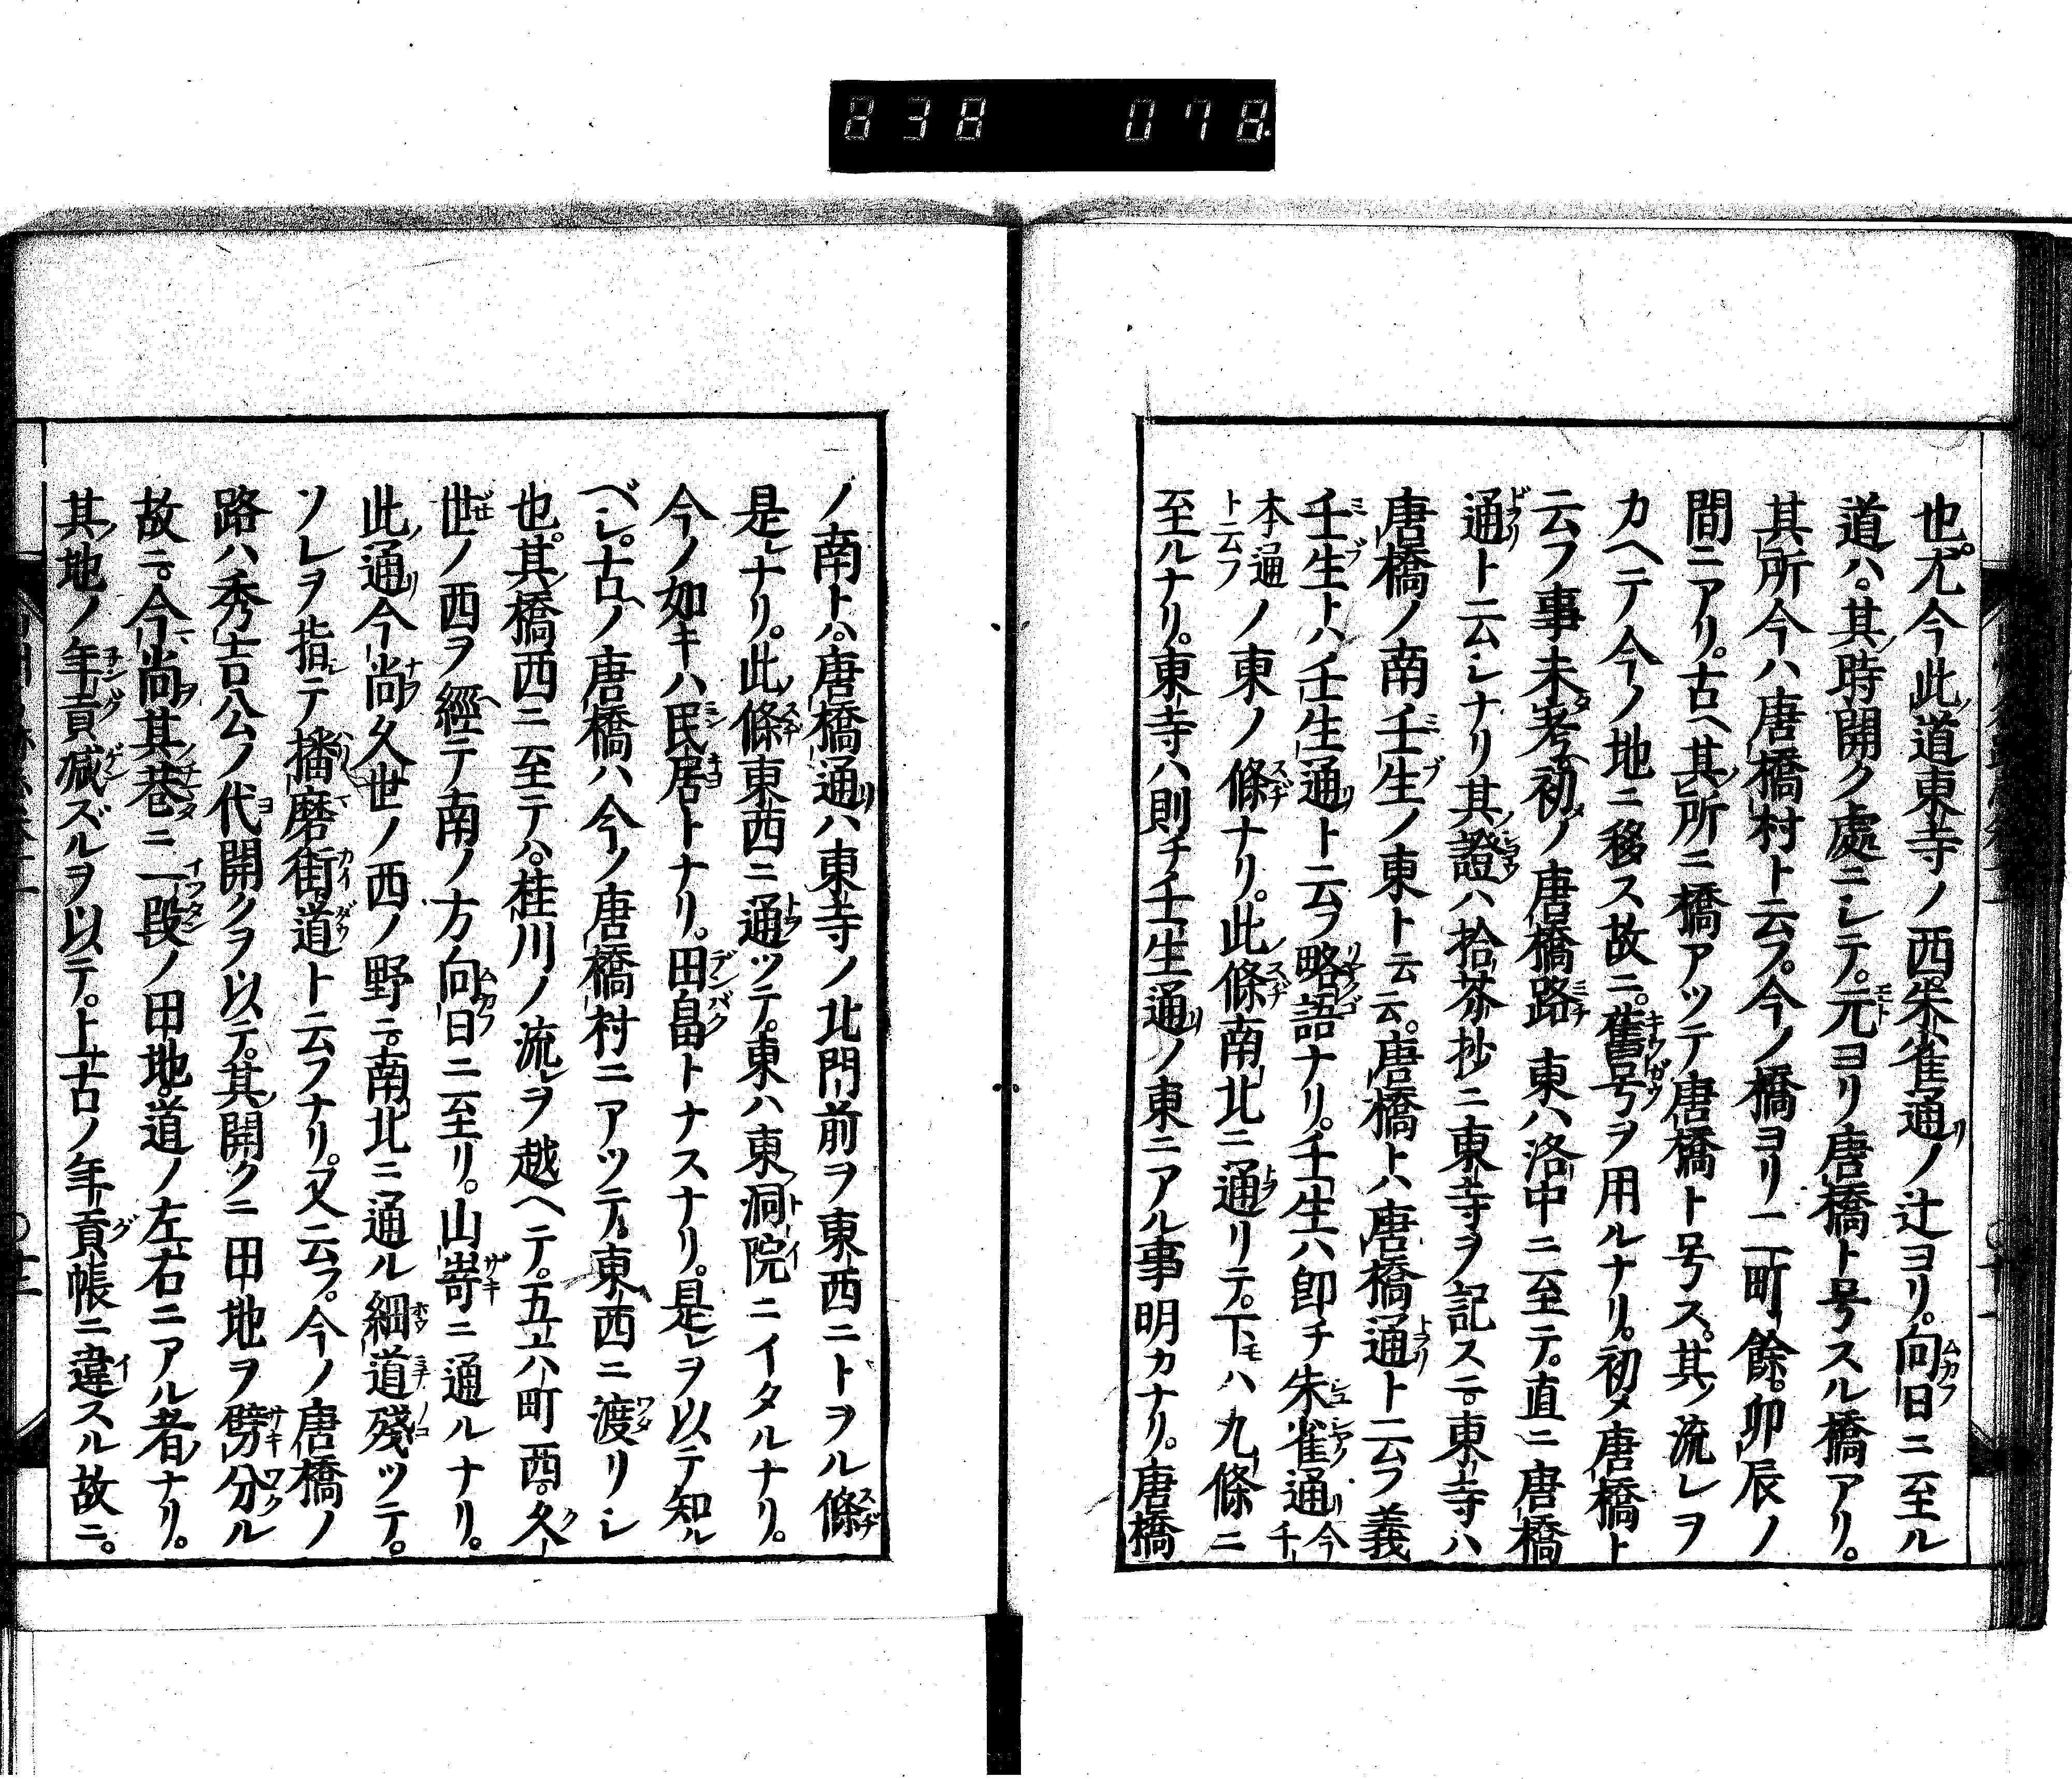 838 078
也。尤今此道東寺ノ西。朱雀通ノ辻ヨリ。向日ニ至ル
道ハ。其時開ク處ニシテ。元ヨリ唐橋ト号スル橋アリ。
其所今ハ唐橋村ト云フ。今ノ橋ヨリ一二町餘。卯辰ノ
間ニアリ。古ヘ其所ニ橋アツテ唐橋ト号ス。其ノ流レヲ
カヘテ今ノ地ニ移ス故ニ。舊号ヲ用ルナリ。初メ唐橋ト
云フ事未考初ノ唐橋路東ハ洛中ニ至テ。直ニ唐橋
通ト云シナリ其證ハ拾芥抄ニ東寺ヲ記スニ。東寺ハ
唐橋ノ南壬生ノ東ト云云。唐橋トハ唐橋通ト云フ義
壬生トハ壬生通ト云フ略語ナリ。壬生ハ即チ朱雀通今千
本通ト云フノ東ノ條ナリ。此條南北ニ通リテ。下モハ九條ニ
至ルナリ。東寺ハ則チ壬生通ノ東ニアル事明カナリ。唐橋
ノ南トハ。唐橋通ハ東寺ノ北門前ヲ東西ニトヲル條
是レナリ。此條東西ニ通ツテ。東ハ東洞院ニイタルナリ。
今ノ如キハ民居トナリ。田畠トナスナリ。是レヲ以テ知ル
ベシ。古ヘノ唐橋ハ今ノ唐橋村ニアツテ。東西ニ渡リシ
也。其橋西ニ至テハ。桂川ノ流レヲ越ヘテ。五六町西。久
世ノ西ヲ經テ南ノ方向日ニ至リ。山嵜ニ通ルナリ。
此通今尚久世ノ西ノ野ニ。南北ニ通ル細道殘ツテ。
ソレヲ指シテ播磨街道ト云フナリ。又云フ。今ノ唐橋ノ
路ハ秀吉公ノ代開クヲ以テ。其開クニ田地ヲ劈分ル
故ニ。今尚其巷ニ一段ノ田地。道ノ左右ニアル者ナリ。
其地ノ年貢减ズルヲ以テ。上古ノ年貢帳ニ違スル故ニ。